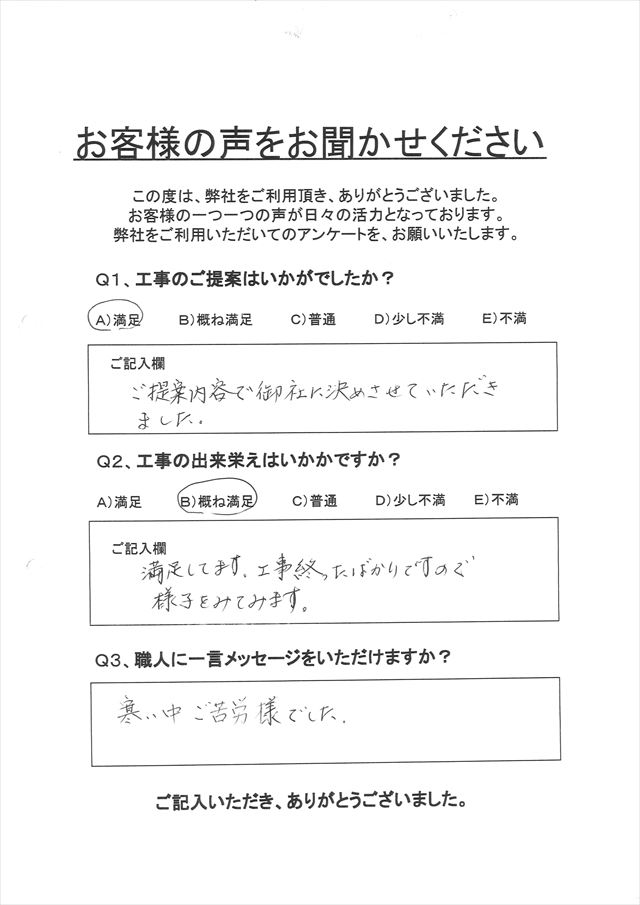 お客様の声をお聞かせください
この度は、弊社をご利用頂き、ありがとうございました。
お客様の一つ一つの声が日々の活力となっております。
弊社をご利用いただいてのアンケートを、お願いいたします。
Q1、工事のご提案はいかがでしたか？
A)満足 B)概ね満足 C)普通 D)少し不満 E)不満
ご記入欄
ご提案内容で御社に決めさせていただき
ました。
Q2、工事の出来栄えはいかかですか？
A)満足 B)概ね満足 C)普通 D)少し不満 E)不満
ご記入欄
満足してます、工事終ったばかりですので
様子をみてみます。
Q3、職人に一言メッセージをいただけますか？
寒い中ご苦労様でした.
ご記入いただき、ありがとうございました。